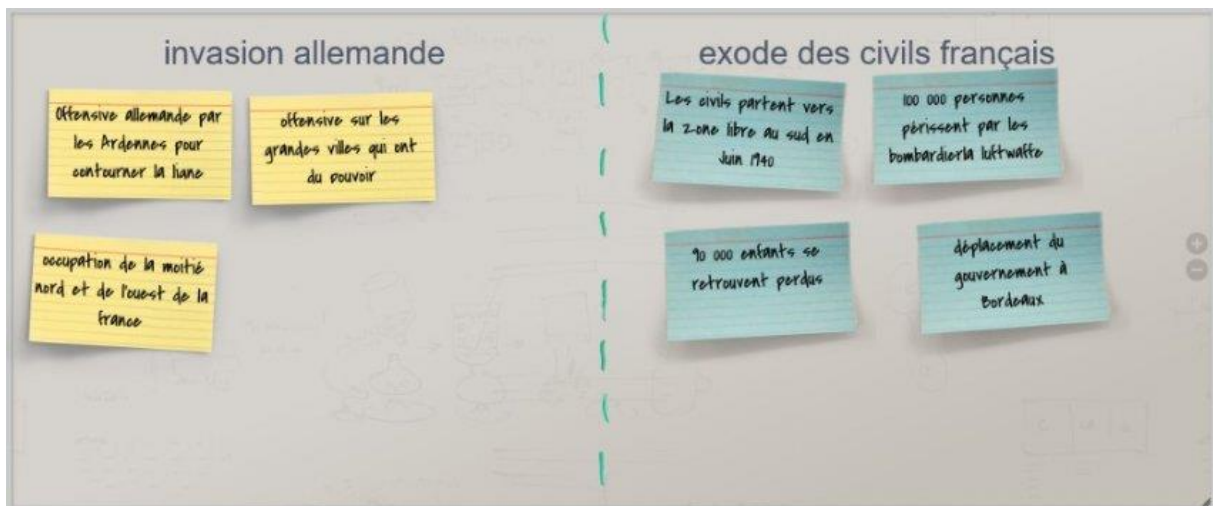 invasion allemande
Offensive allemande par
les Ardennes pour
contourner la ligne
offensive sur les
grandes villes qui ont
du pouvoir
occupation de la moitié
nord et de l'ouest de la
france
exode des civils français
Les civils partent vers
la zone libre au sud en
Juin 1940
100 000 personnes
périssent par les
bombardierla luftwaffe
90 000 enfants se
retrouvent perdus
déplacement du
gouvernement à
Bordeaux